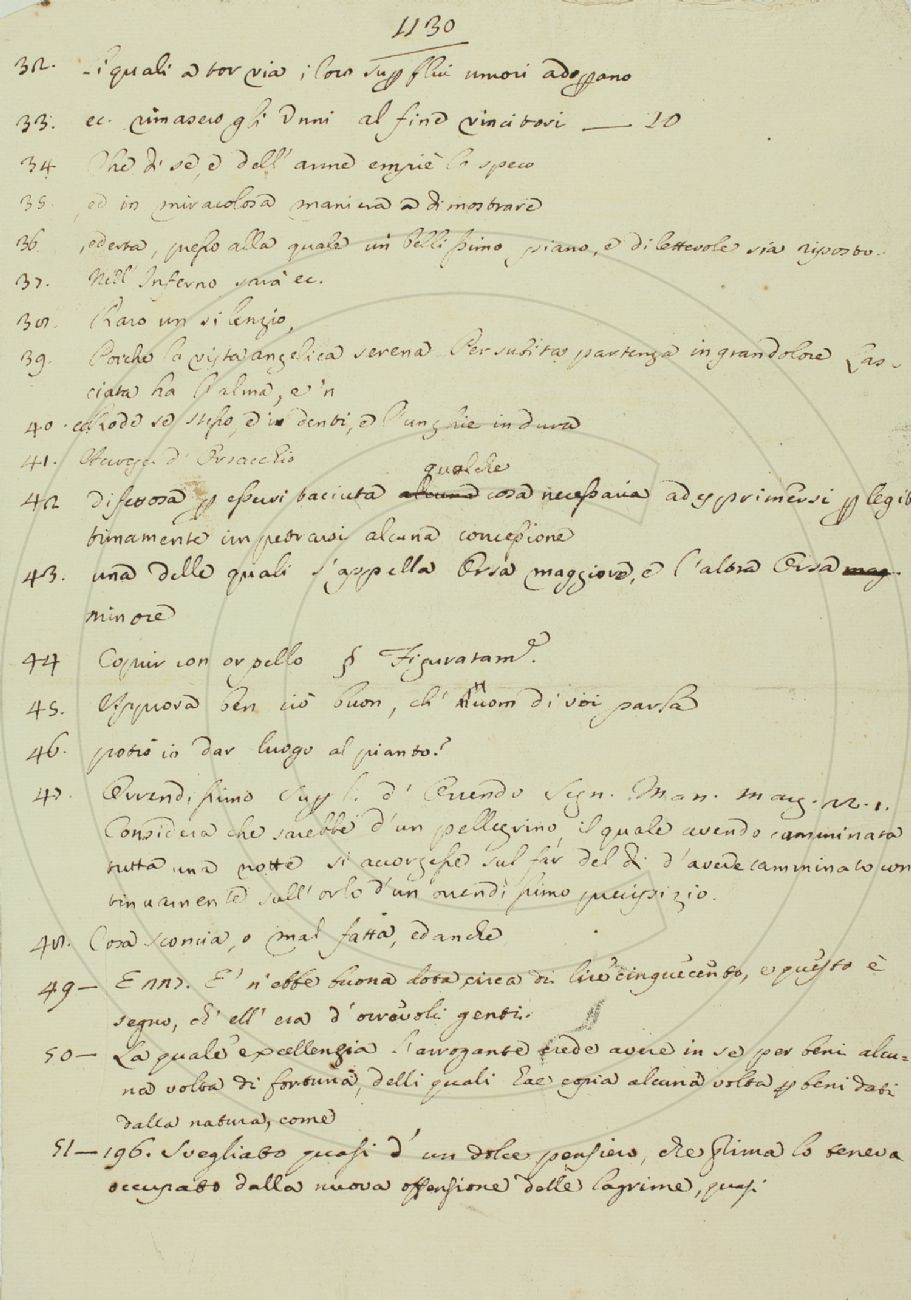 1130
32. - i quali a tor via i loro umori adoprano
33. ec. rimasero gli Unni al fine vincitori — 20
34 Che di se, e dell' arme empiè lo speco
35. ed in miracolosa maniera a dimostrare
36. ederta, presso alla quale un bellissimo piano, e dilettevole sia riposto.
37. Nell' Inferno sarà ec.
38. Raro un silenzio,
39. Poiche la vista angelica serena Per subita partenza in gran dolore Las-
ciata ha l' alma, e 'n
40. Rode se stesso, e i denti, e l' unghie indura
41. d' Orsacchio
qualche
42 difettosa p essersi taciuta alcuna cosa necessaria ad esprimersi p legit
timamente impetrarsi alcuna concessione
43. una delle quali s' appella Orsa maggiore, e l' altra Orsa mag
minore
44 Coprir con orpello § Figuratamᵉ.
45. Approva ben ciò buon, ch' uom di voi parla
46. potrò io dar luogo al pianto?
47. Orrendissimo d' Orrendo Segn. Man. Mag. 12. 1.
Considera che sarebbe d' un pellegrino, il quale avendo camminata
tutta una notte si accorgesse sul far del dì d' avere camminato con
tinuamente sull' orlo d' un orrendissimo precipizio.
48. Cosa sconcia, o mal fatta, ed anche
49 — E' n' ebbe buona dota circa di lire cinquecento, e questo è
segno, ch' ell' era d' orrevoli genti.
50 — La quale excellenzia l' arrogante crede avere in se per beni alcu-
na volta di fortuna, delli quali hae copia alcuna volta p beni dati
dalla natura, come
51 — 196. Svegliato quasi d' un dolce pensiero, che prima lo teneva
occupato dalla nuova offensione delle lagrime, quasi